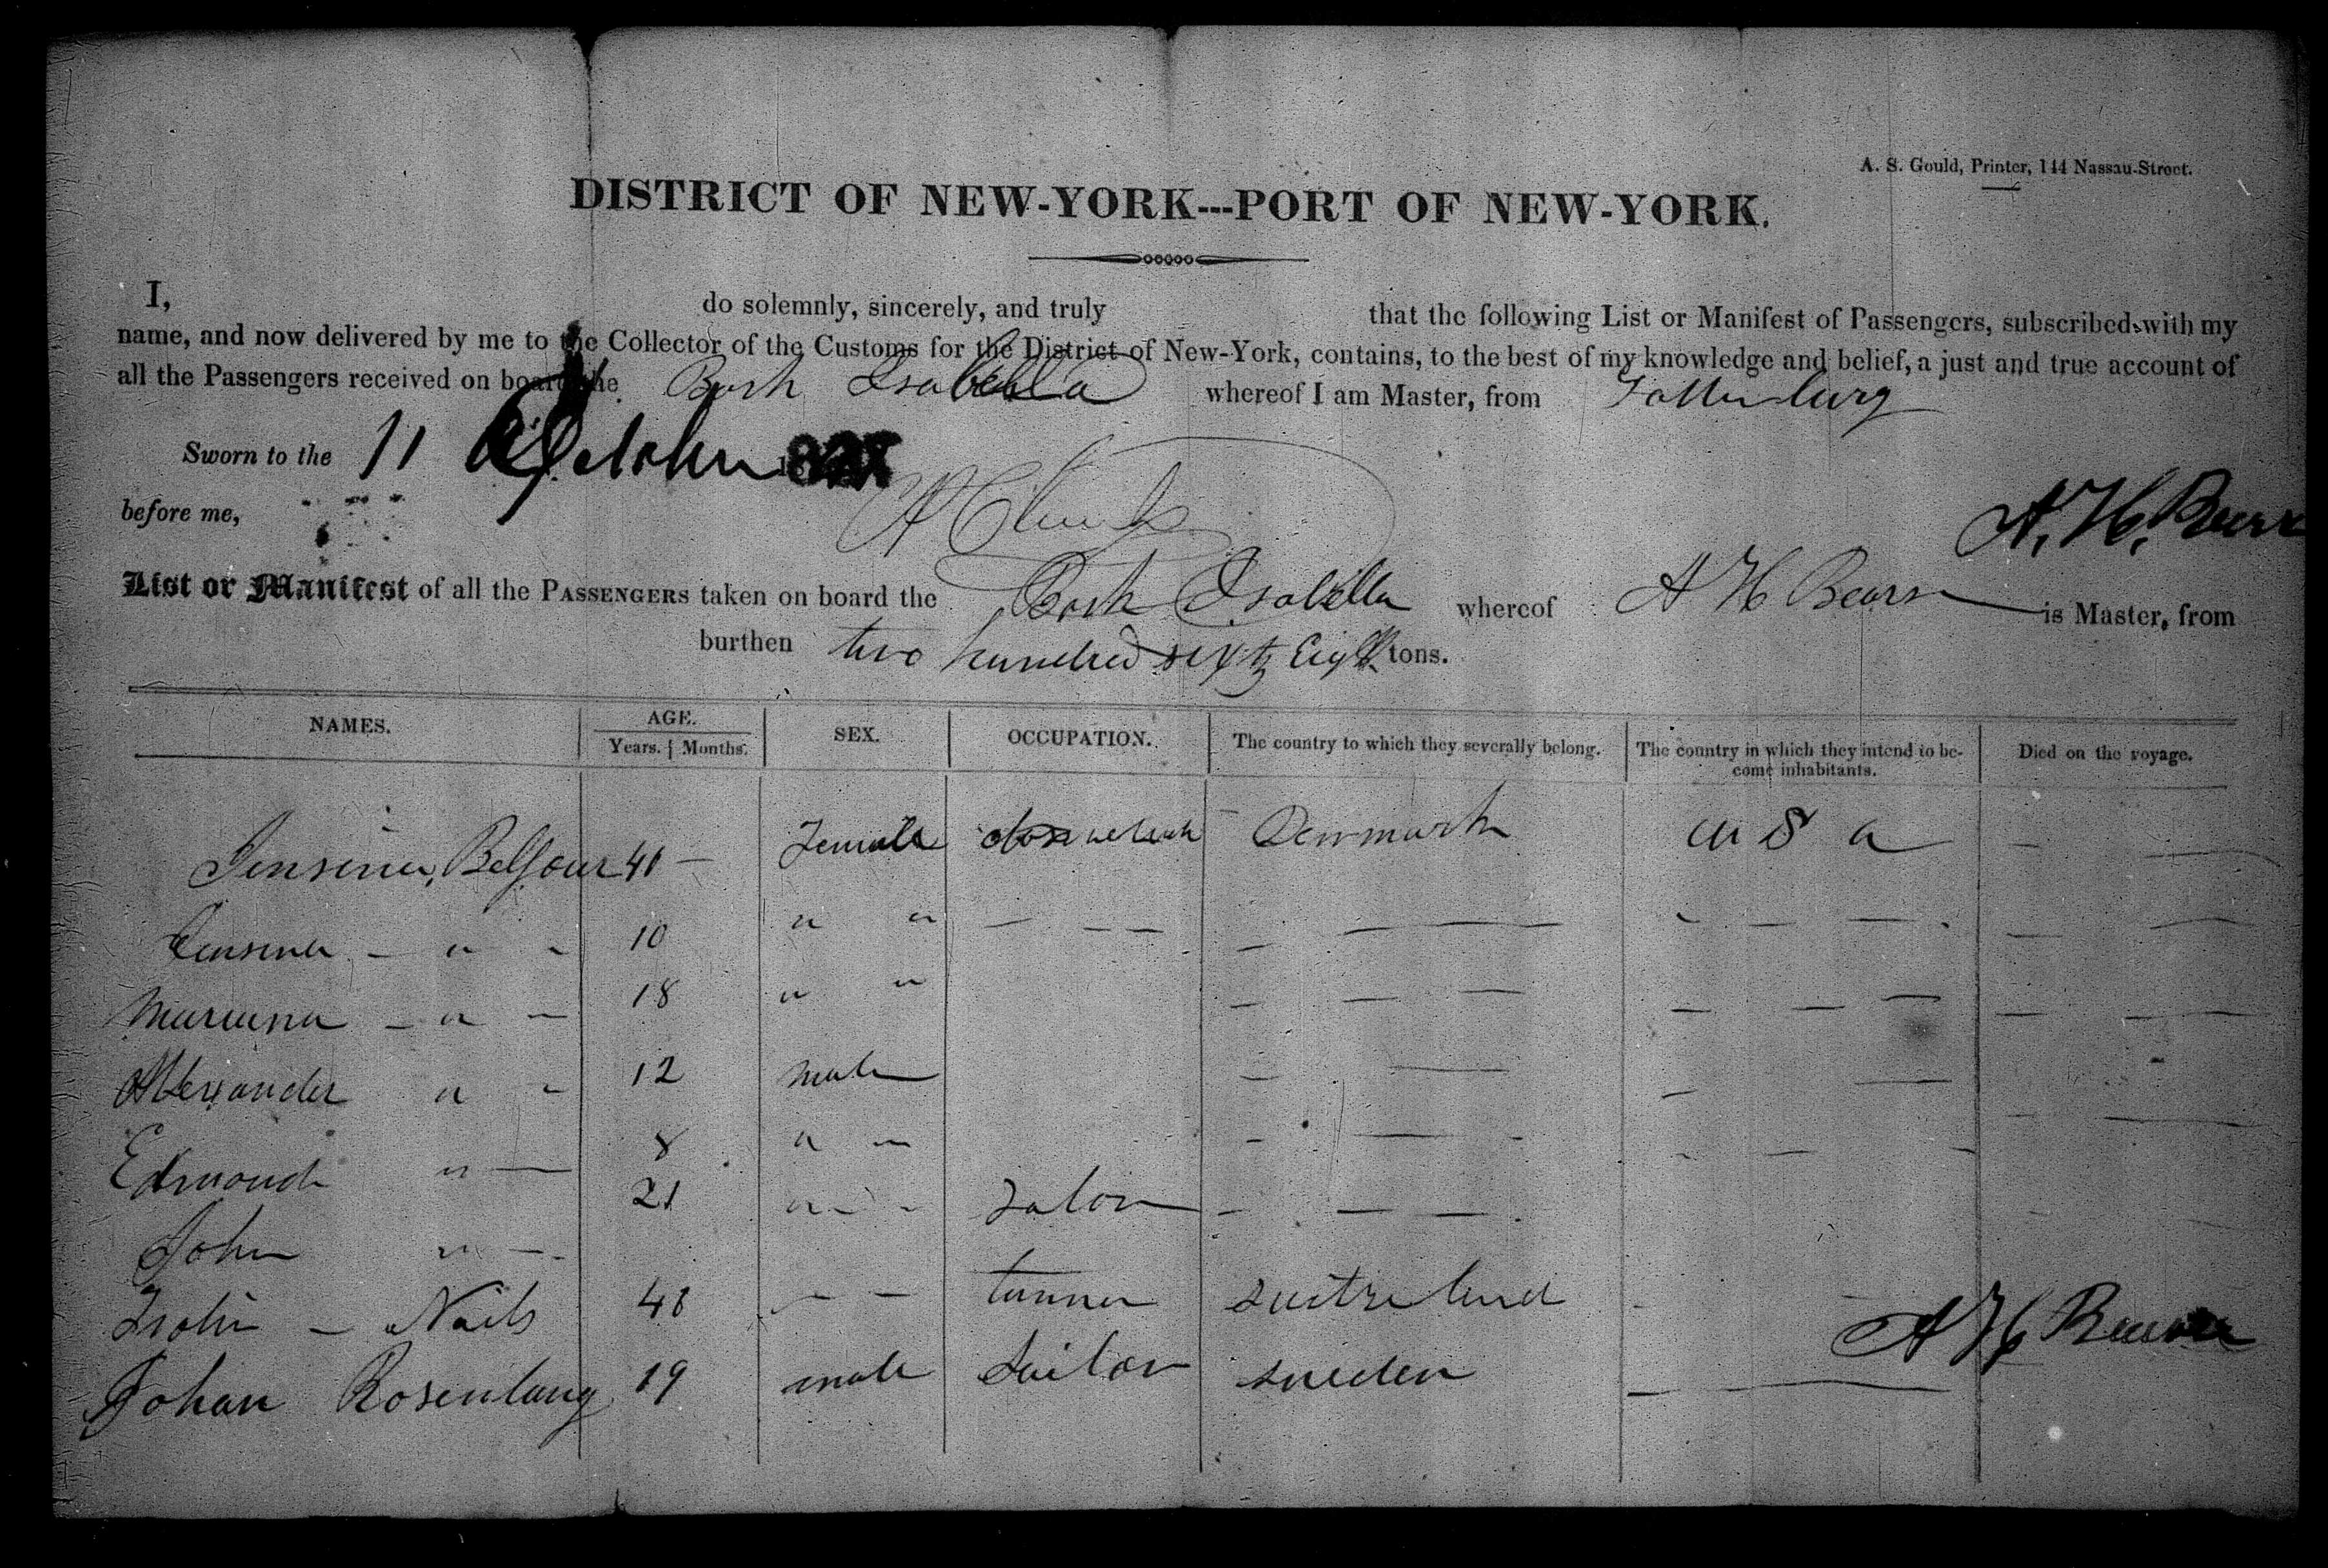 A. S. Gould, Printer, 144 Nassau-Street.
DISTRICT OF NEW-YORK---PORT OF NEW-YORK.
I, do solemnly, sincerely, and truly that the following List or Manifest of Passengers, subscribed with my
name, and now delivered by me to the Collector of the Customs for the District of New-York, contains, to the best of my knowledge and belief, a just and true account of
all the Passengers received on board the Bark Isabella whereof I am Master, from
Sworn to the 11 October
before me, A. H.
List or Manifest of all the PASSENGERS taken on board the Bark Isabella whereof A H Bearse is Master, from
burthen two hundred sixty Eight tons.
NAMES. AGE. SEX. OCCUPATION. The country to which they severally belong. The country in which they intend to be- Died on the voyage.
Years. Months. come inhabitants.
Belfour 40 — Female Denmark U S a
— " - 10 " "
Mariana — " — 18 " "
Alexander " - 12 male
Edmond " — 8 " —
John " — 21 " - - Salor
— Nails 48 — — tanner Switzeland
Johan Rosenlang 19 male Sailor Sweden
A H Bearse